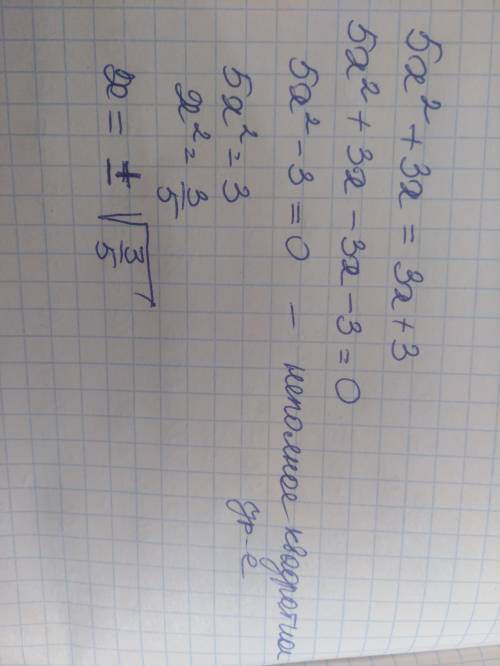 5x² + 3x = 3x + 3
5x² + 3x - 3x - 3 = 0
5x² - 3 = 0 - неполное квадратно
ур-е
5x² = 3
x² = 3/5
x = ± √3/5